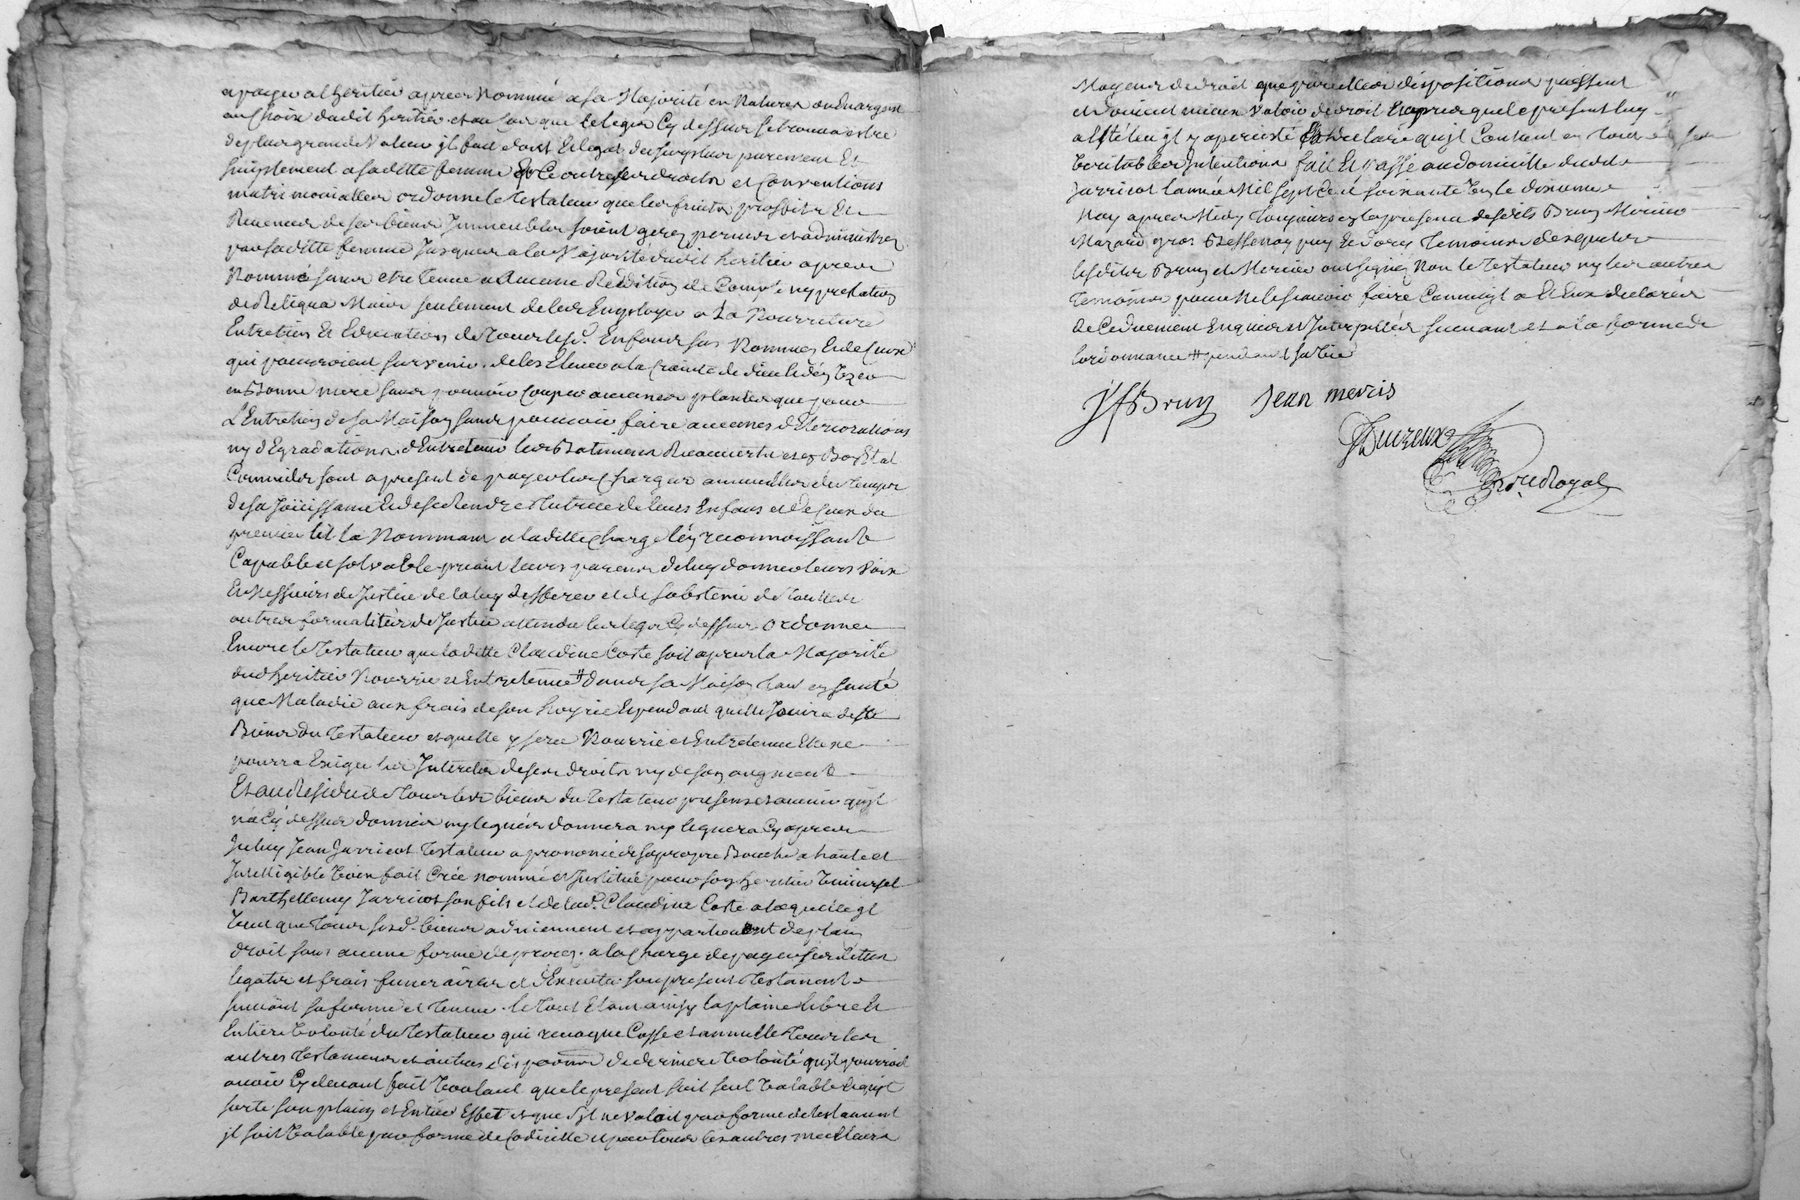 a payer a l'heritier apres Nommé a sa Majorité en Nature ou en argent
au Choix dudit heritier et au Cas que le legs Cy dessus se trouva estre
de plus grande Valeur il fait don et legat du surplus purement Et
simplement a sa ditte femme Et outre ses droits et Conventions
matrimonialles ordonne le Testateur que les fruits proffits Et
Revenus de ses biens Immeubles soient gerez percus et administrez
par sa ditte femme Jusques a la Majorité dudit heritier apres
Nommé sans etre tenue a aucune Reddition de Compte ny prestation
de Reliqua Mais seulement de les Employer a La Nourriture
Entretien Et Education de tous les d. Enfans sus Nommez Et de Ceux
qui pourroient survenir de les Elever a la Crainte de dieu
en Bonne mere sans pouvoir Couper aucunes plantes que pour
L'Entretien de sa Maison sans pouvoir faire aucunes déteriorations
ny dégradations d'Entretenir les Batimens Recouverts et en Bon Etat
Comme ils sont a present de payer les Charges annuelles du temps
de sa Joüissance Et de se Rendre tutrice de leurs Enfans et de Ceux du
premier lit La Nommant a la ditte Charge l'en reconnoissant
Capable et solvable priant leurs parens de luy donner leurs Voix
Et Messieurs de Justice de la luy defferer et de s'abstenir de toutes
autres formalitéz de Justice attendu les legs Cy dessus ordonne
Encore le Testateur que la ditte Claudine Coste soit apres la Majorité
dud heritier Nourrie et Entretenue # dans sa Maison tant en santé
que Maladie aux frais de son hoyrie Et pendant quelle Jouira desd
Biens du Testateur et quelle y sera Nourrie et Entretenue Elle ne
pourra Exiger les Interets de ses droits ny de son augment
Et au Residu de tous les biens du Testateur presens et avenir qu'il
n'a Cy dessus donnés ny legués donnera ny leguera Cy apres
Iceluy Jean Jarricot Testateur a prononcé de sa propre Bouche a haute et
Intelligible Voix fait Créé nommé et Institué pour son heritier Universel
Barthellemy Jarricot son fils et de lad. Claudine Coste auquel il
Veut que tous sesd. biens adviennent et appartiennent de plain
droit sans aucune forme de procez a la Charge de payer ses dettes
legats et frais funeraires et d'Executer son present testament
suivant sa forme et teneur le tout Etant ainsy la plaine libre Et
Entiere Volonté du Testateur qui revoque Casse et annulle tous les
autres testamens et autres dispoons de derniere Volonté qu'il pourroit
avoir Cy devant fait Voulant que le present soit seul Valable Et qu'il
sorte son plain et Entier Effet et que s'il ne Valoit par forme de testament
il soit Valable par forme de Codicille et par tous les autres meilleurs
Moyens de droit que pareilles dispositions puissent
et doivent mieux Valoir de droit Et apres que le present luy
a été leu il y a persisté Et declare qu'il Contient en tout ses
Veritables Intentions fait Et passé au domicille dudit
Jarricot l'année Mil sept Cent soixante le dixieme
May apres Midy toujours en la presence desdits Bruy Mercier
Mazard gros Bessenay puy Et Dory temoins desquels
lesdits Bruy et Mercier ont signéz Non le Testateur ny les autres
temoins pour Ne le scavoir faire Comme il a Et Eux declarés
de Ce duement Enquis et Interpellés suivant et a la forme de
l'ordonnance # pendant sa Vie
J F Bruy Jean mercis
Dureux
Nore Royal